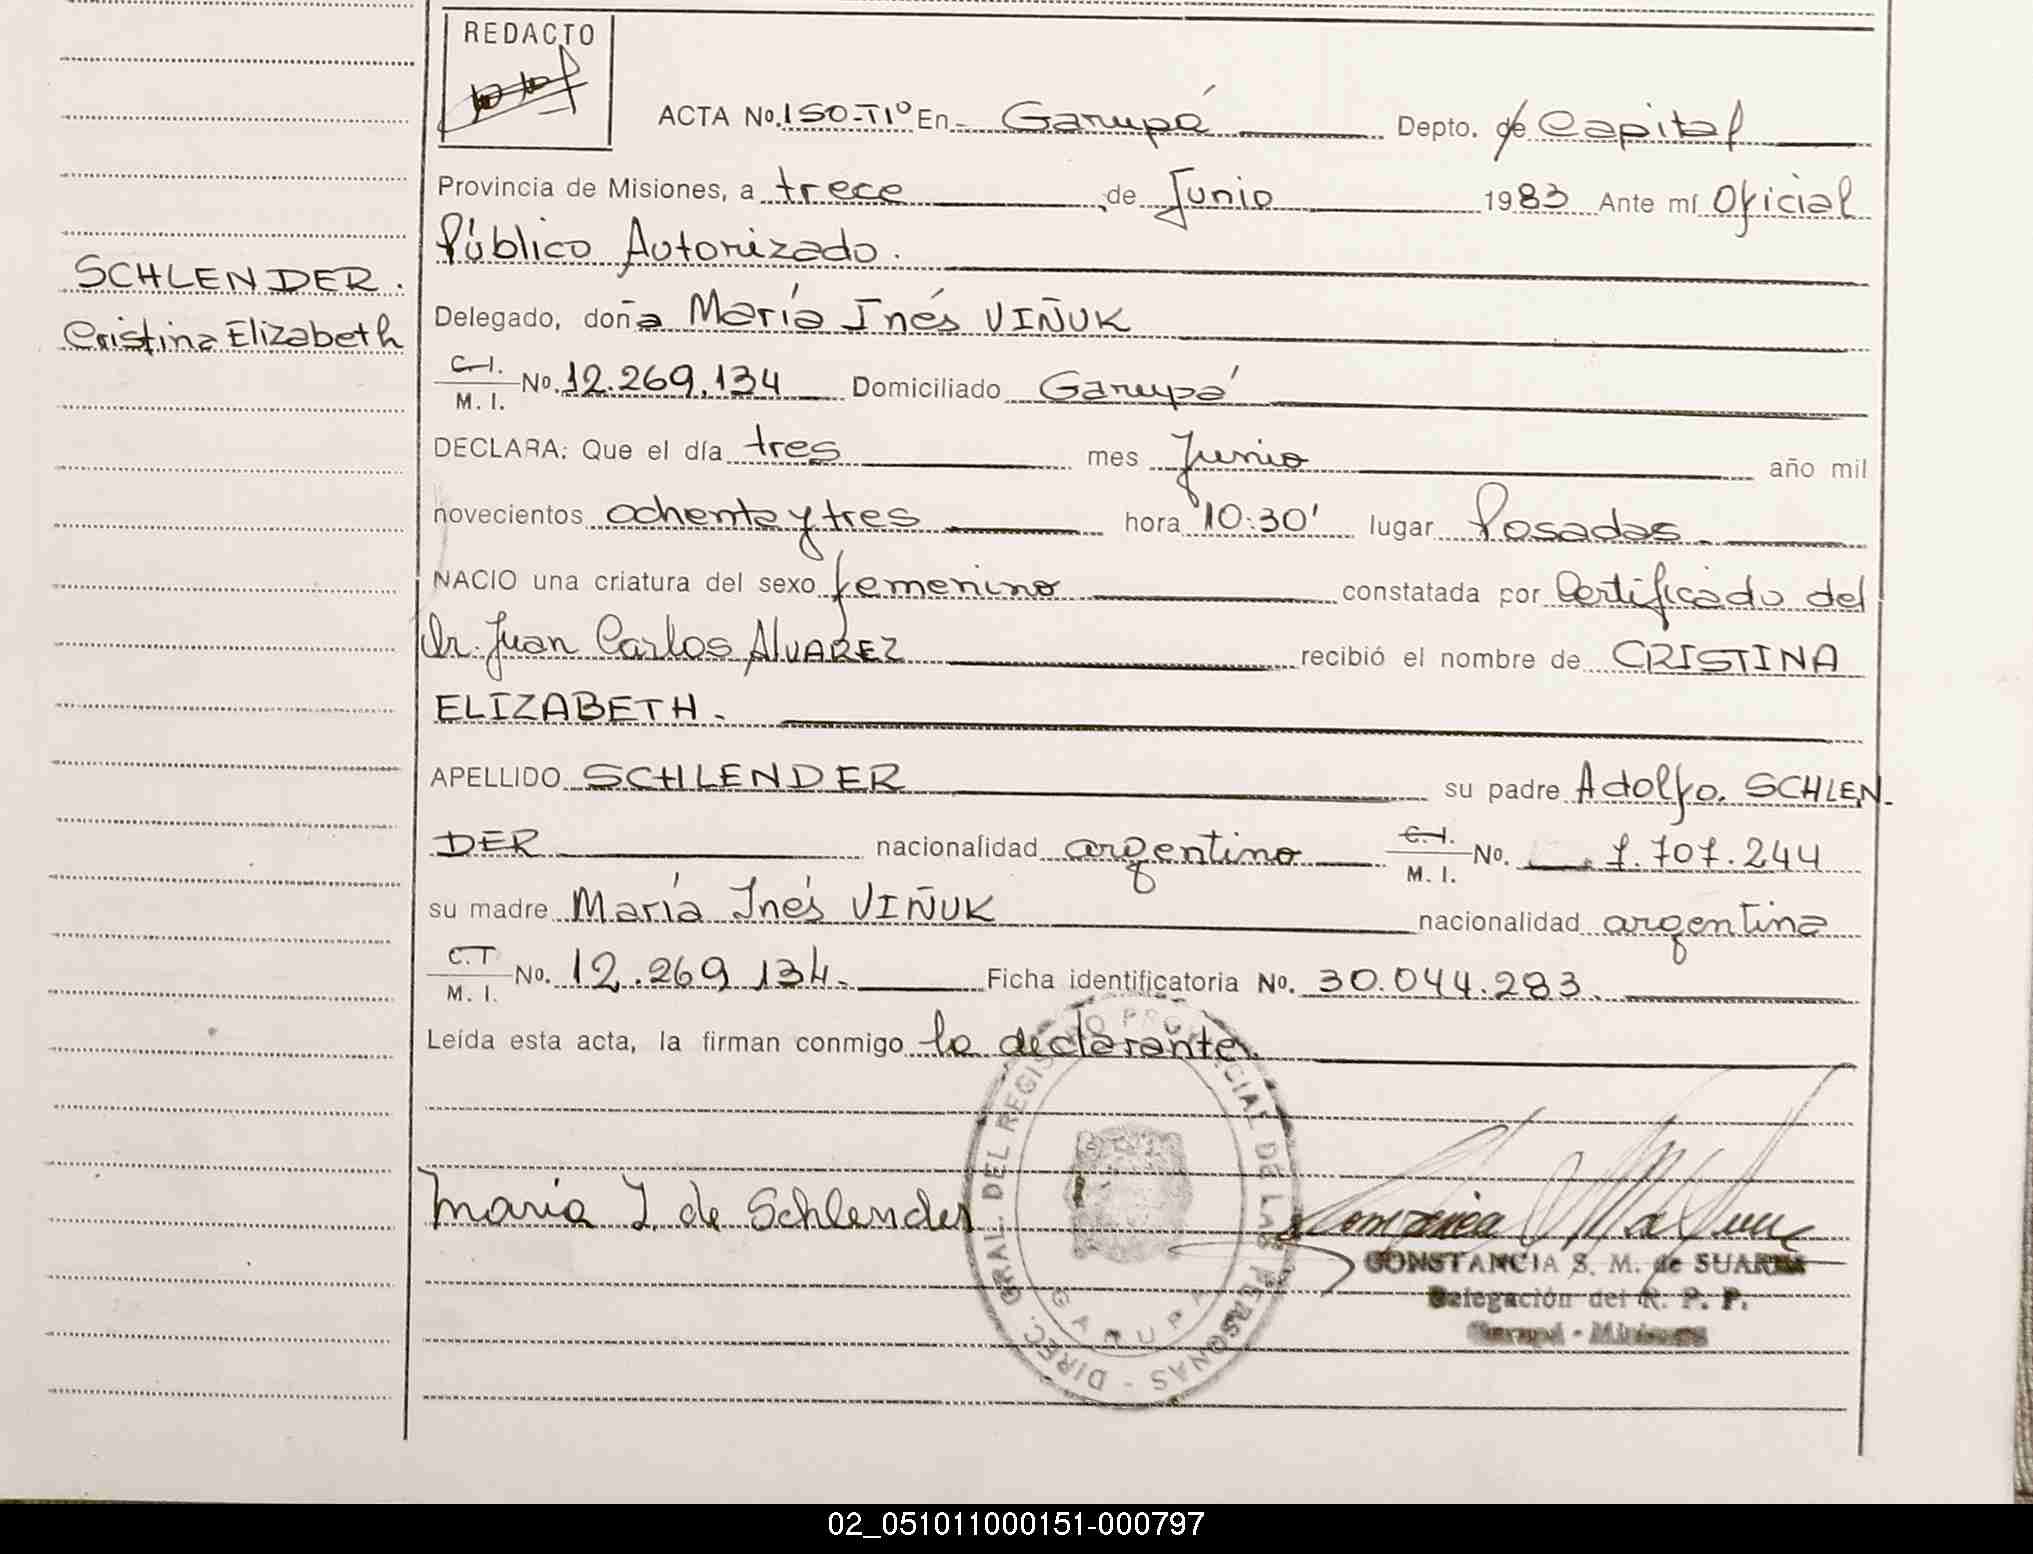 REDACTO
ACTA No. 150-Tº1 En Garupá Depto. de Capital
Provincia de Misiones, a trece de Junio 1983 Ante mí Oficial
Público Autorizado.
SCHLENDER.
Cristina Elizabeth
Delegado, doña María Inés VIÑUK
C.I.
M. I. No. 12.269.134 Domiciliado Garupá
DECLARA: Que el día tres mes Junio año mil
novecientos ochenta y tres hora 10:30' lugar Posadas.
NACIO una criatura del sexo femenino constatada por Certificado del
Dr. Juan Carlos ALVAREZ recibió el nombre de CRISTINA
ELIZABETH.
APELLIDO SCHLENDER su padre Adolfo. SCHLEN-
DER nacionalidad argentino C.I.
M. I. No. 7.707.244
su madre María Inés VIÑUK nacionalidad argentina
C.I
M. I. No. 12.269.134. Ficha identificatoria No. 30.044.283.
Leída esta acta, la firman conmigo la declarante.
DIREC. GRAL. DEL REGISTRO PROVINCIAL DE LAS PERSONAS -
GARUPA
María I. de Schlender
CONSTANCIA S. M. de SUAREZ
Delegación del R. P. P.
Garupá - Misiones
02_051011000151-000797